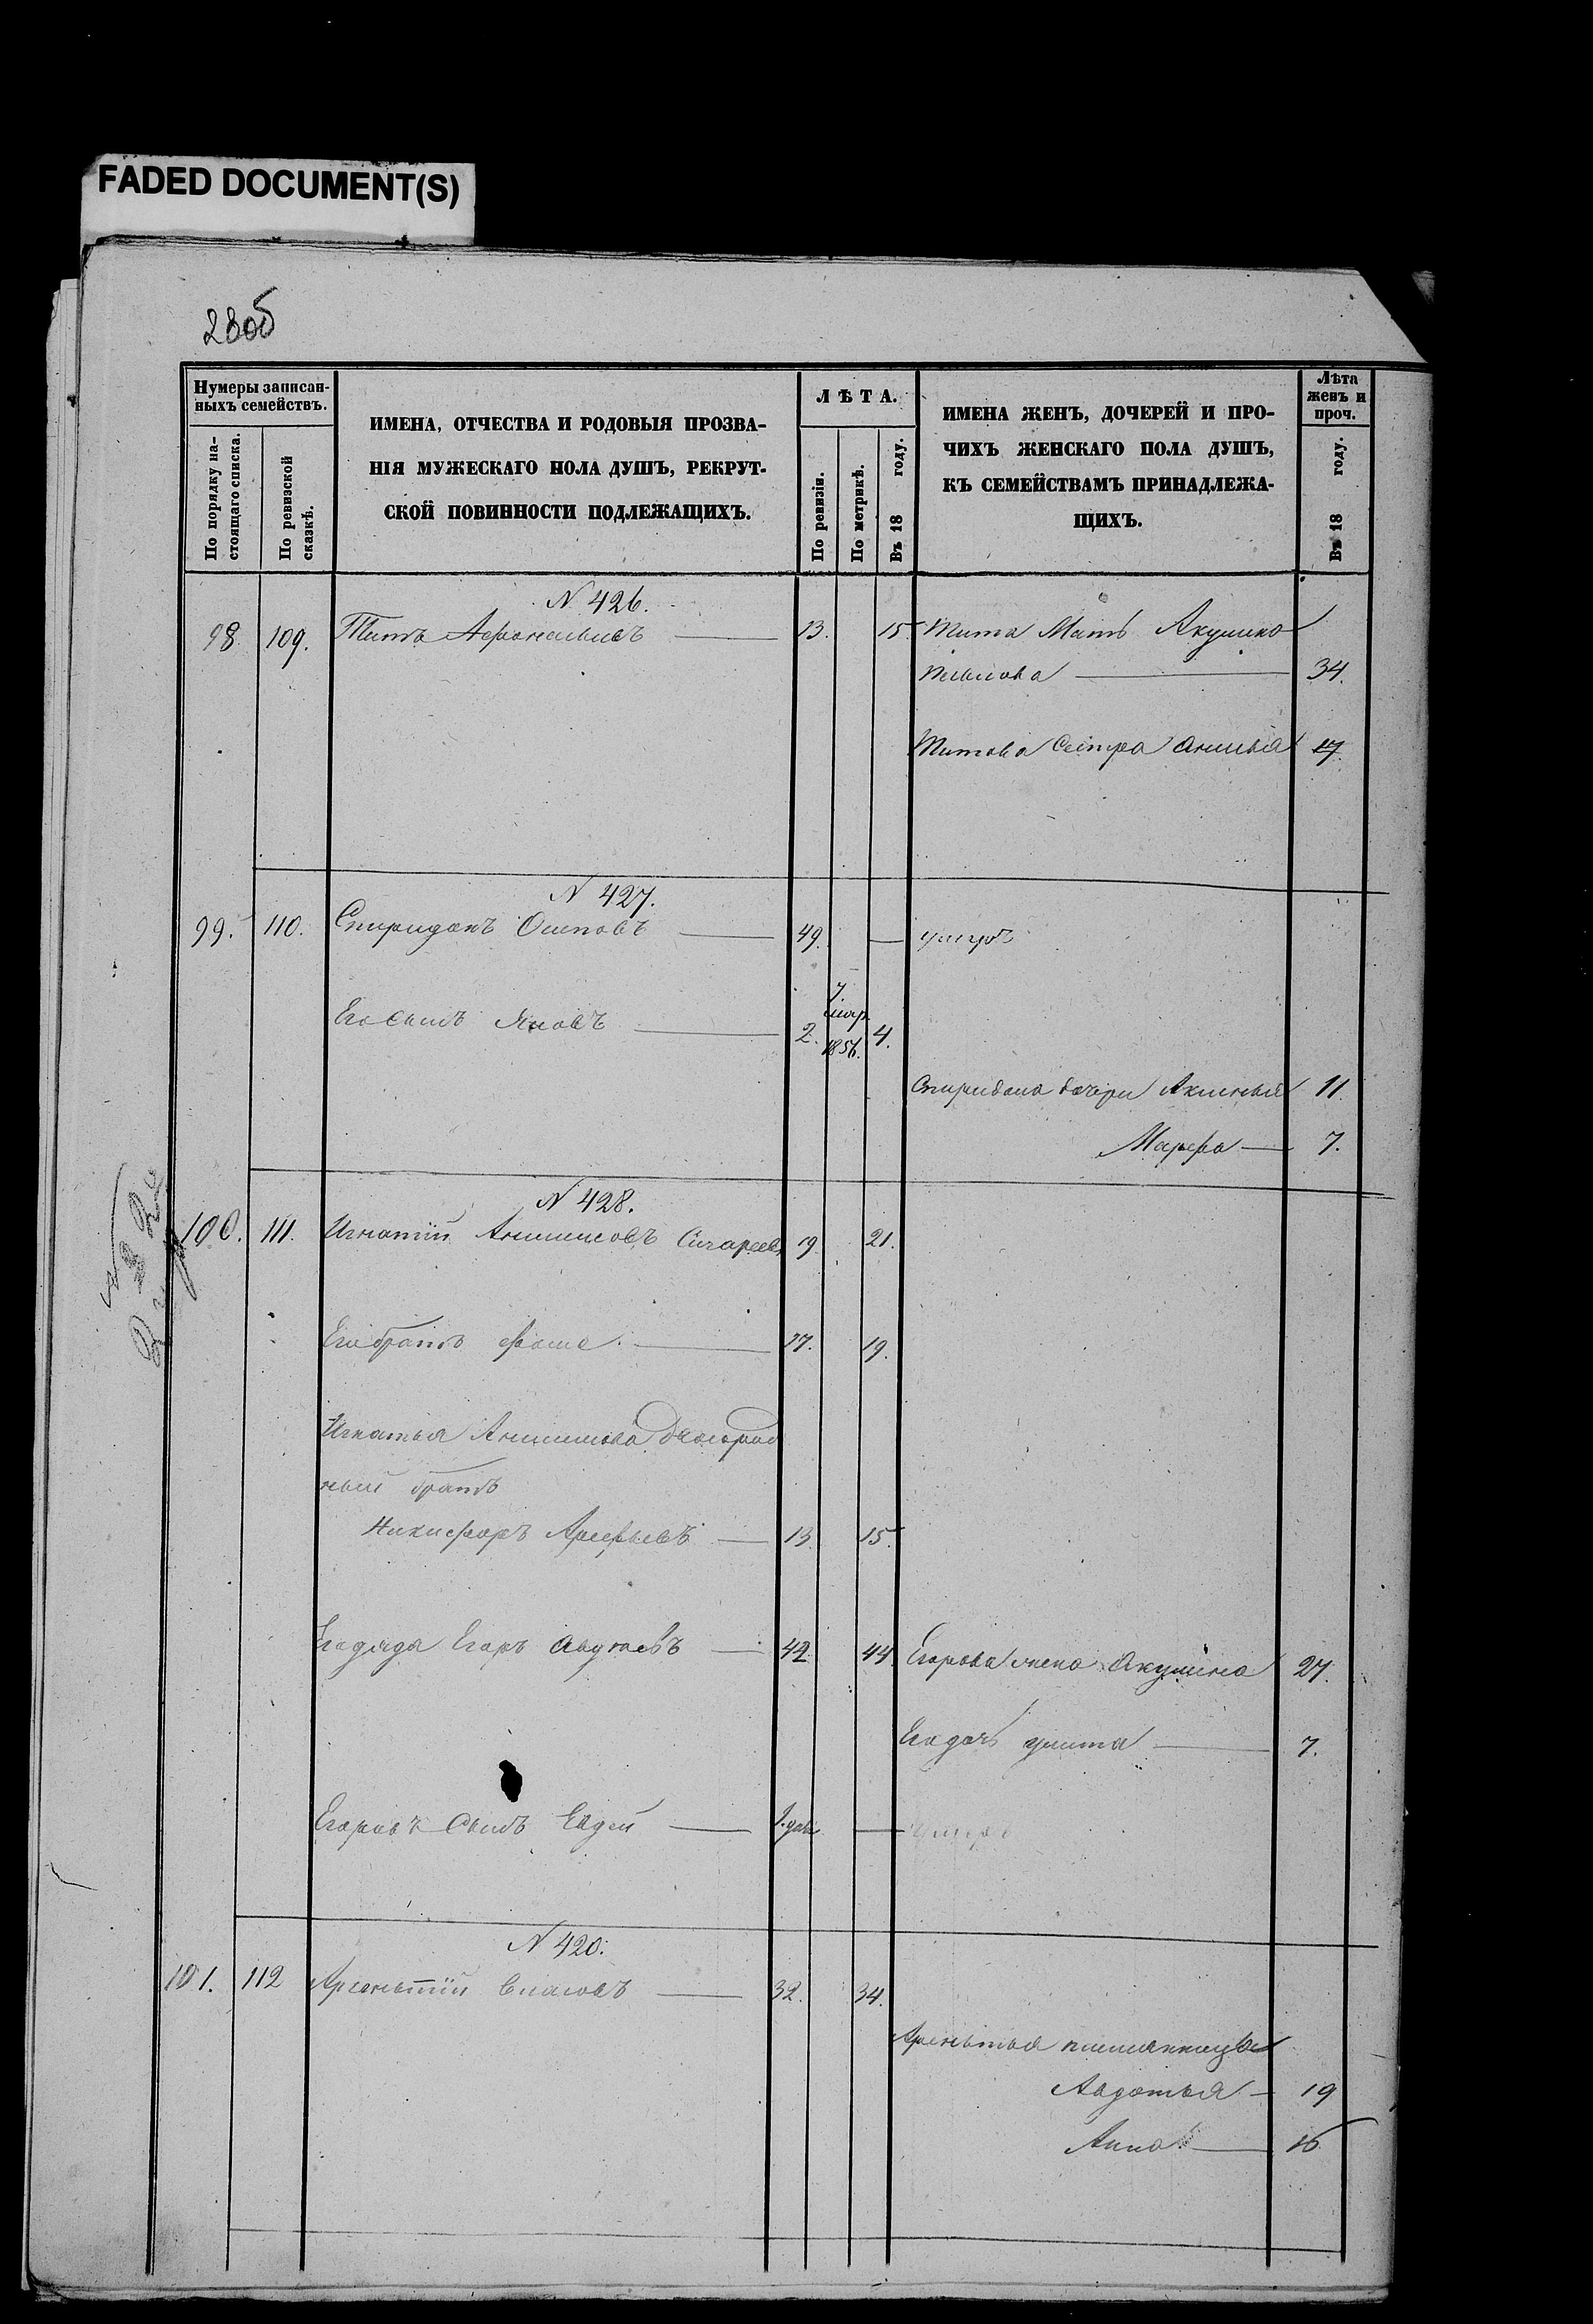 FADED DOCUMENT(S)
280б
Нумеры записан-
ныхъ семействъ.
По порядку на-
стоящаго списка.
По ревизской
сказкѣ.
ИМЕНА, ОТЧЕСТВА И РОДОВЫЯ ПРОЗВА-
НІЯ МУЖЕСКАГО ПОЛА ДУШЪ, РЕКРУТ-
СКОЙ ПОВИННОСТИ ПОДЛЕЖАЩИХЪ.
ЛѢТА.
По ревизіи.
По метрикѣ.
Въ 18 году.
ИМЕНА ЖЕНЪ, ДОЧЕРЕЙ И ПРО-
ЧИХЪ ЖЕНСКАГО ПОЛА ДУШЪ,
КЪ СЕМЕЙСТВАМЪ ПРИНАДЛЕЖА-
ЩИХЪ.
Лѣта
женъ и
проч.
Въ 18 году.
N 426.
98. 109. Титъ Афонасьивъ 13. 15. Тита Мать Акулина
34.
Титова Сестра 17.
N 427.
99. 110. Спиридонъ Осиповъ 49. — умеръ
Его сынъ 2. 7. мар. 1856. 4.
Спиридона дочери Аксинья 11.
Марфа — 7.
N 428.
100. 111. Игнатій Анисимовъ 19 21.
Его братъ Фома 17. 19.
Игнатья Анисимова двоюрод
ный братъ
Никифоръ Арефьевъ — 13. 15.
Его дядя Егоръ 42. 44. Егорова жена Акулина 27.
Его дочь улита 7.
Егоровъ Сынъ Евдей — — умеръ
N 420.
101. 112 Арсентій Власовъ — 32. 34.
Арсентья племянницы
Авдотья — 19
Анна — 16